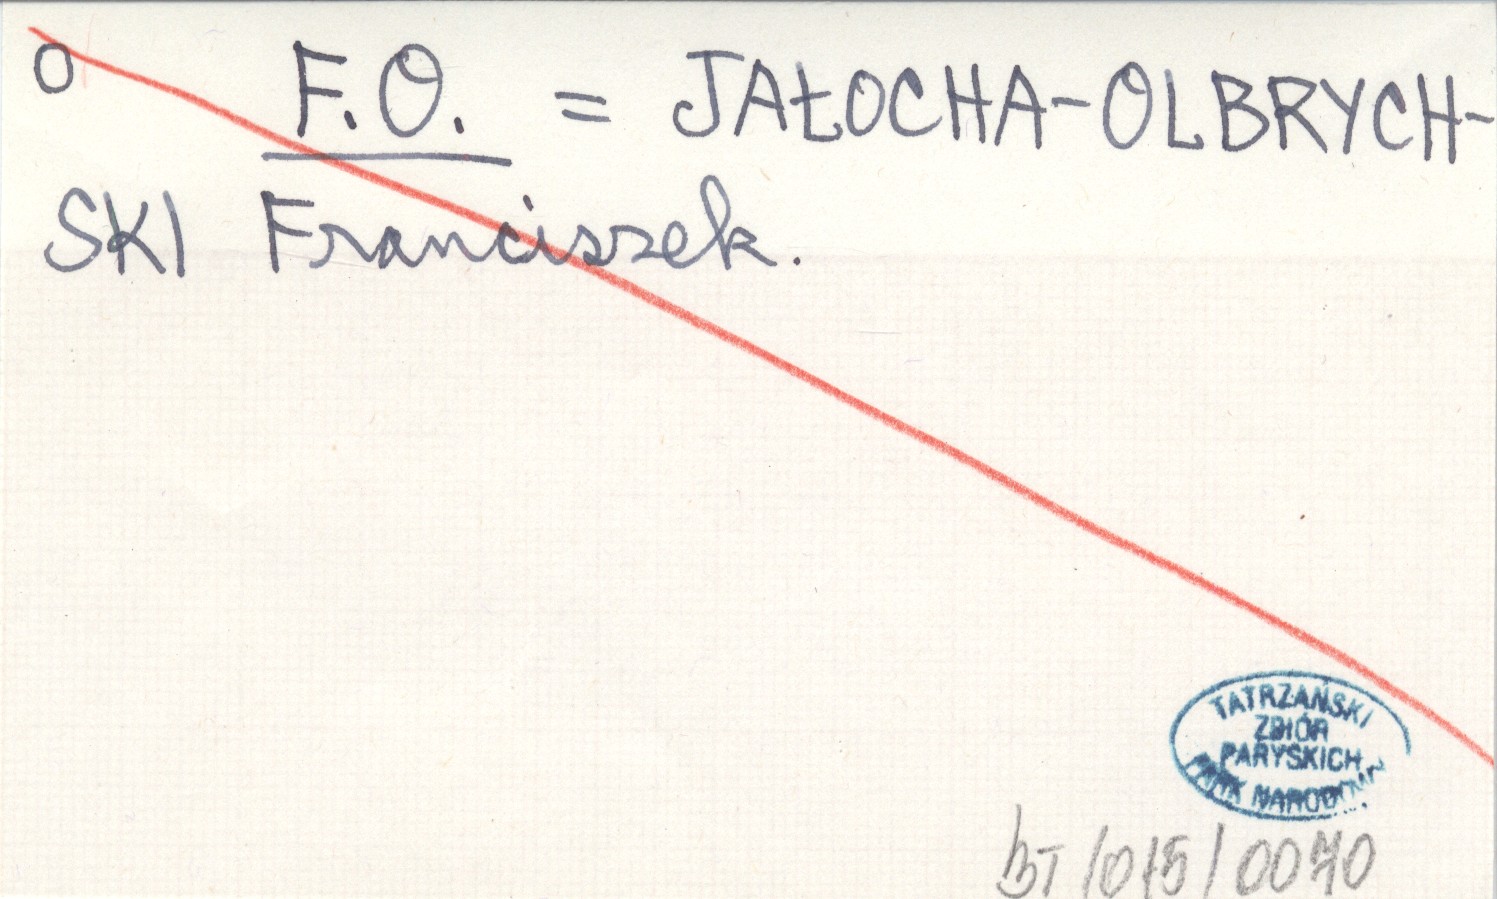 O F.O. = JAŁOCHA-OLBRYCH-
SKI Franciszek.
TATRZAŃSKI
ZBIÓR
PARYSKICH
PARK NARODOWY
BT/015/0070